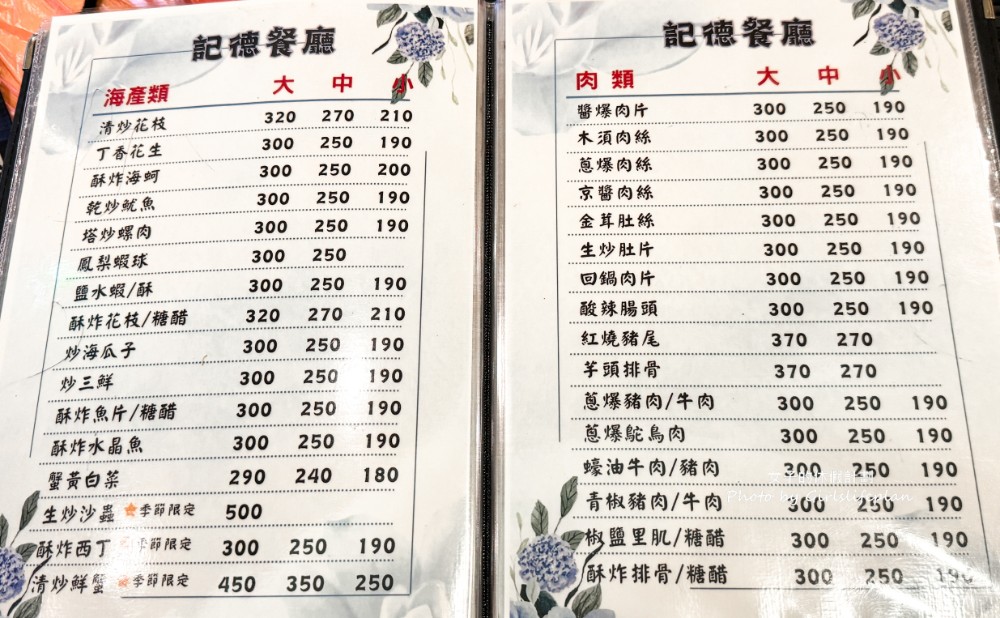 記德餐廳
海產類 大 中 小
清炒花枝 320 270 210
丁香花生 300 250 190
酥炸海蚵 300 250 200
乾炒魷魚 300 250 190
塔炒螺肉 300 250 190
鳳梨蝦球 300 250
鹽水蝦/酥 300 250 190
酥炸花枝/糖醋 320 270 210
炒海瓜子 300 250 190
炒三鮮 300 250 190
酥炸魚片/糖醋 300 250 190
酥炸水晶魚 300 250 190
蟹黃白菜 290 240 180
生炒沙蟲 季節限定 500
酥炸西丁 季節限定 300 250 190
清炒鮮蟹 季節限定 450 350 250
記德餐廳
肉類 大 中 小
醬爆肉片 300 250 190
木須肉絲 300 250 190
蔥爆肉絲 300 250 190
京醬肉絲 300 250 190
金茸肚絲 300 250 190
生炒肚片 300 250 190
回鍋肉片 300 250 190
酸辣腸頭 300 250 190
紅燒豬尾 370 270
芋頭排骨 370 270
蔥爆豬肉/牛肉 300 250 190
蔥爆鴕鳥肉 300 250 190
蠔油牛肉/豬肉 300 250 190
青椒豬肉/牛肉 300 250 190
椒鹽里肌/糖醋 300 250 190
酥炸排骨/糖醋 300 250 190
Photo by Girlslifeplan